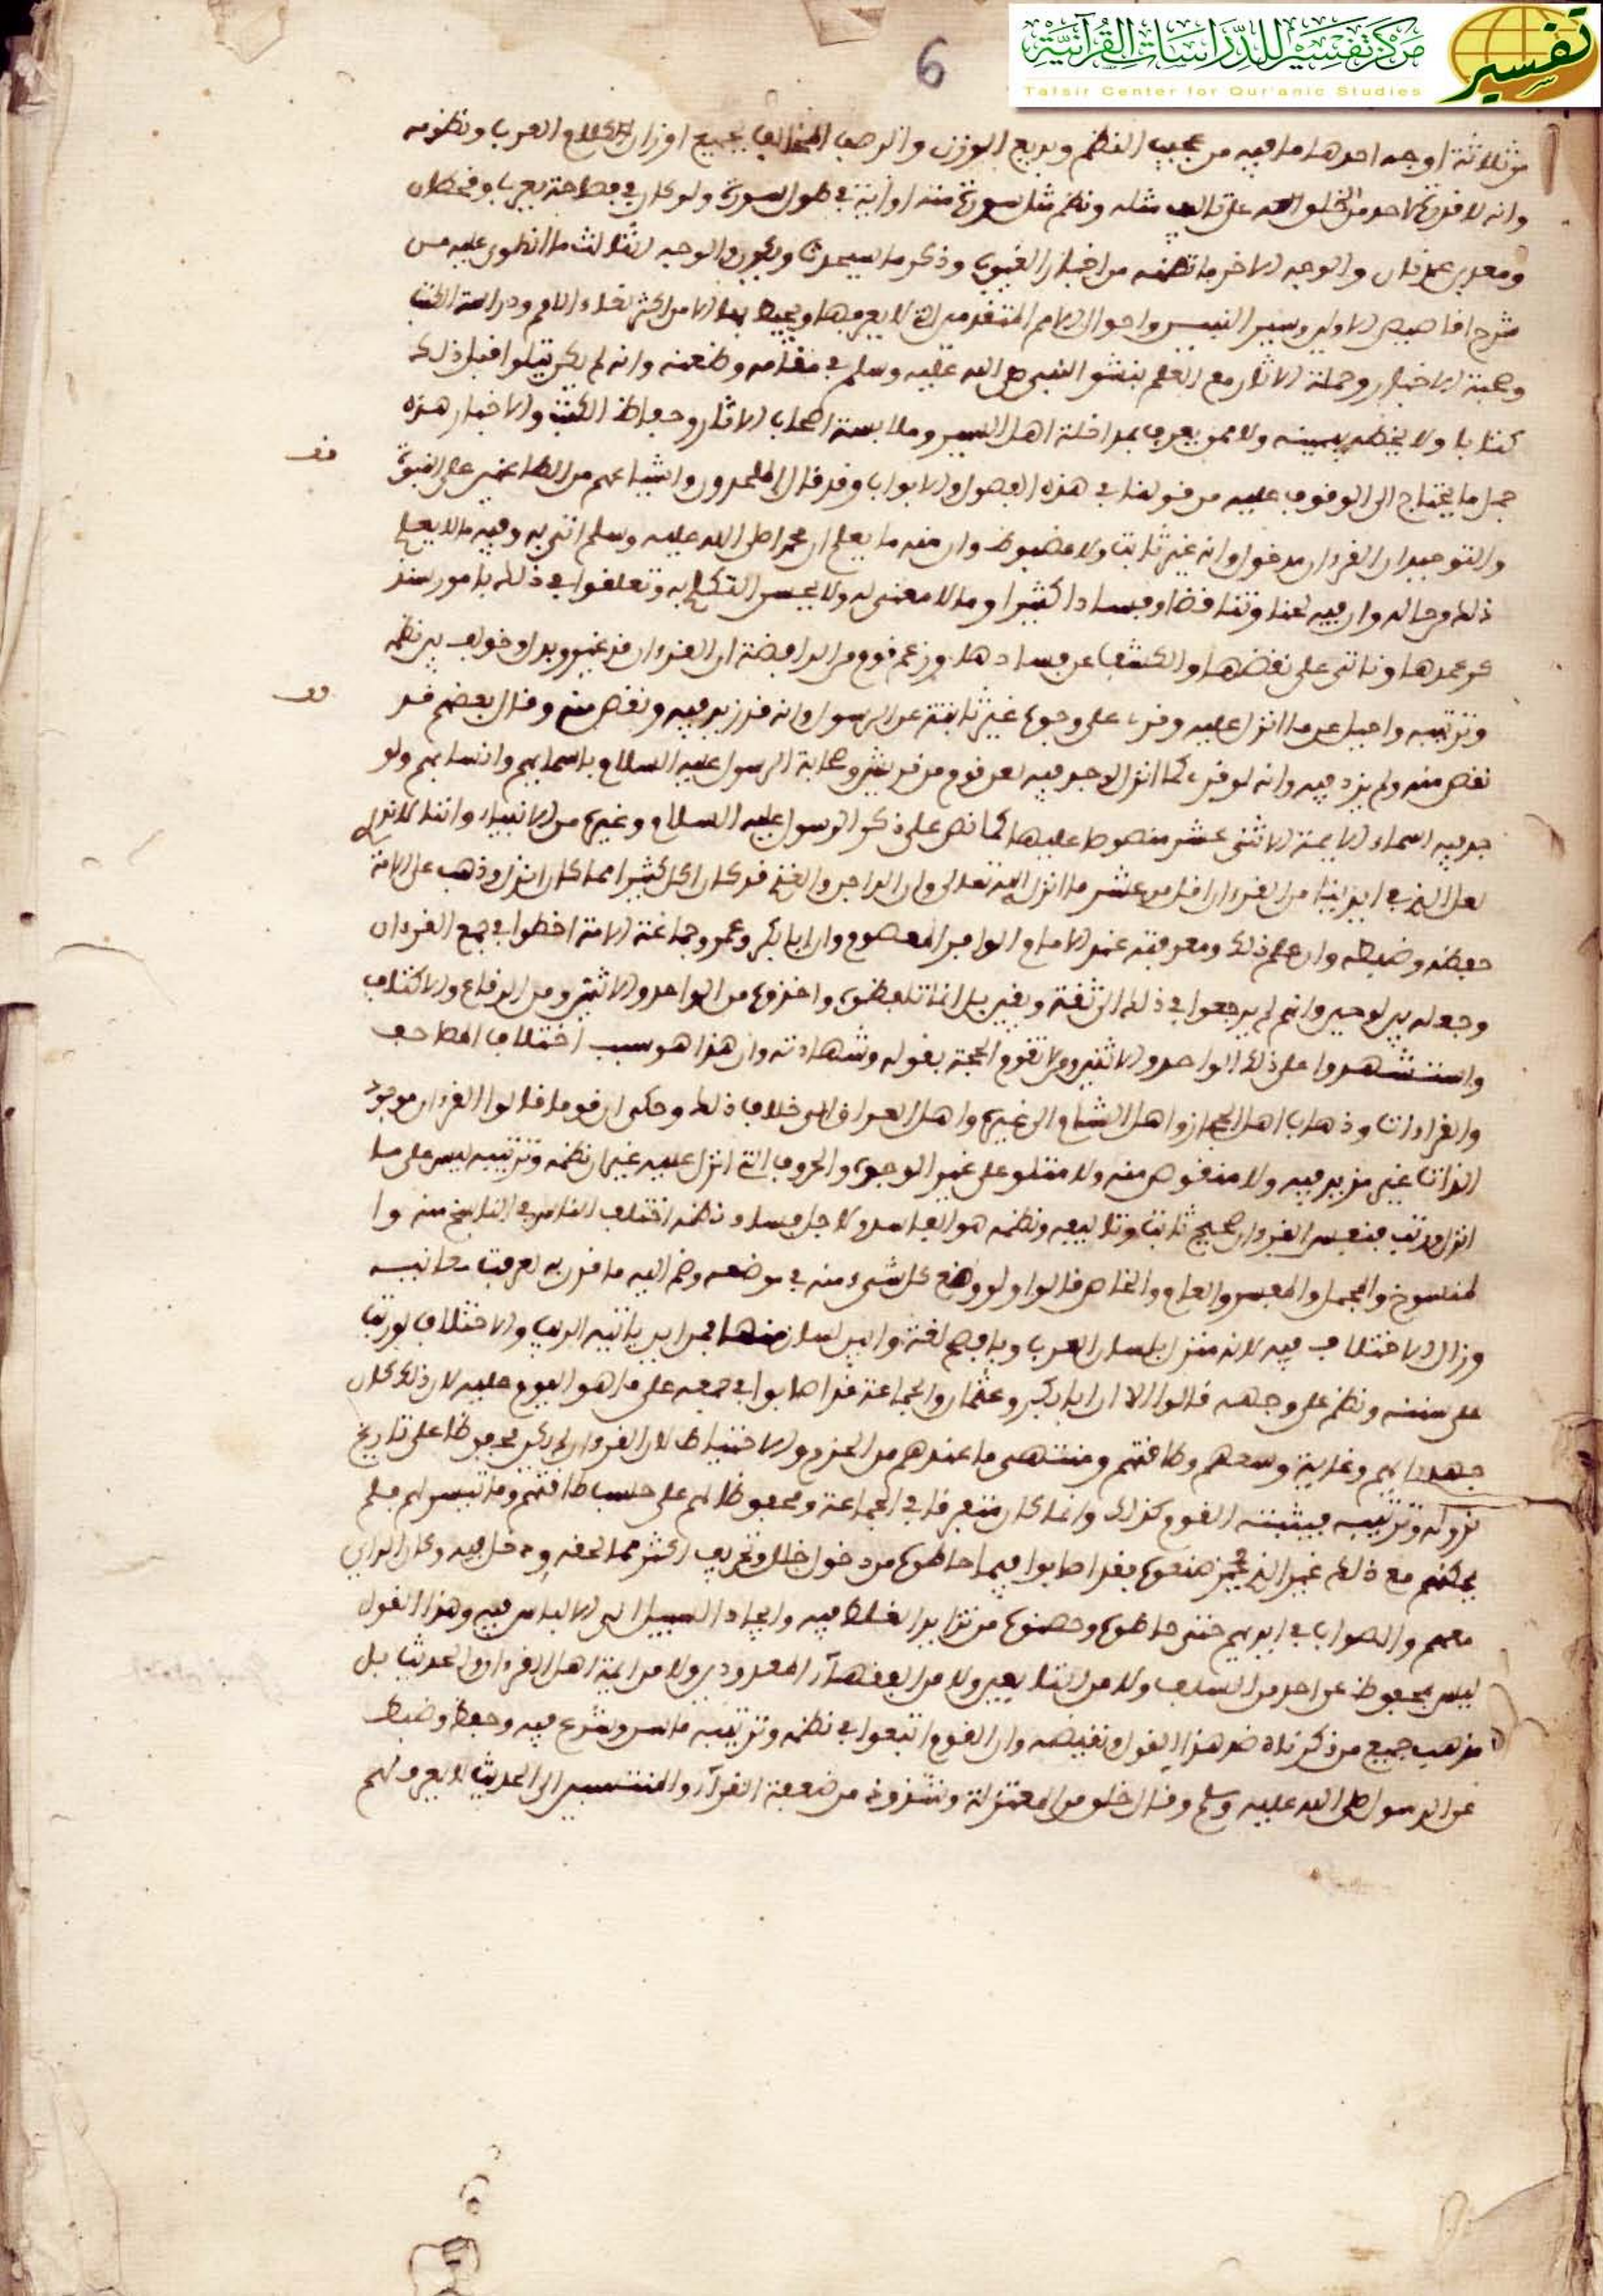 مركز تفسير للدراسات القرآنية
تفسير
Tafsir Center for Qur'anic Studies
6
من ثلاثة اوجه احدها ما فيه من عجيب النظم وبديع الوزن والرصف المخالف لجميع اوزان كلام العرب ونظومه
وانه لا قدرة لاحد من الخلق على تاليف مثله ونظم مثل سورة منه او اية في طول سورة ولو كان في فصاحة يعرب وقحطان
ومعد بن عدنان والوجه الاخر ما تضمنه من اخبار الغيوب وذكر ما سيحدث ويكون والوجه الثالث ما انطوى عليه من
شرح اقاصيص الاولين وسير النبيين واحوال الامم المتقدمين التي لا يعرفها ويحيط بها الا من اكثر لقاء الامم ودراسة الكتب
وصحبة الاخبار وحملة الاثار مع العلم بنشو النبي صلى الله عليه وسلم في مقامه وظعنه وانه لم يكن يتلوا قبل ذلك
كتابا ولا يخطه بيمينه ولا ممن يعرف بمداخلة اهل السير وملابسة اصحاب الاثار وحفاظ الكتب والاخبار هذه
جمل ما يحتاج الى الوقوف عليه من قولنا في هذه الفصول والابواب وقد قال الملحدون واشياعهم من الطاعنين على النبوة
والتوحيد ان القرءان مدخول وانه غير ثابت ولا مضبوط وان منه ما يعلم ان محمدا صلى الله عليه وسلم اتى به وفيه ما لا يعلم
ذلك من حاله وان فيه لحنا وتناقضا وفسادا كثيرا وما لا معنى له ولا يحسن التكلم به وتعلقوا في ذلك بامور سنذ
كر عمدها وناتي على نقضها والكشف عن فسادها وزعم قوم من الرافضة ان القرءان قد غير وبدل وخولف بين نظمه
وترتيبه واحيل عما انزل عليه وقرء على وجوه غير ثابتة عن الرسول وانه قد زيد فيه ونقص منه وقال بعضهم قد
نقص منه ولم يزد فيه وانه لو قرء كما انزل لوجد فيه لعن قوم من قريش وصحابة الرسول عليه السلام باسمائهم وانسابهم ولو
جد فيه اسماء الايمة الاثنى عشر منصوصا عليها كما نص على ذكر الرسول عليه السلام وغيره من الانبياء وانتا
لعل الذي في ايدينا من القرءان اقل من عشر ما انزل الله تعالى وان الداجن والغنم قد كان اكل كثيرا مما كان انزل وذهب على الامة
حفظه وضبطه وان علم ذلك ومعرفته عند الامام الوافر المعصوم وان ابا بكر وعمر وجماعة الامة اخطوا في جمع القرءان
وجعله بين لوحين وانهم لم يرجعوا في ذلك الى ثقة ويقين بل انما تلقطوه واخذوه من الواحد والاثنين ومن الرقاع والاكتاف
واستشهدوا على ذلك الواحد والاثنين ومن لا تقوم الحجة بقوله وشهادته وان هذا هو سبب اختلاف المصاحف
والقراءات وذهاب اهل الحجاز واهل الشام الى غيره واهل العراق الى خلاف ذلك وحكي ان قوما قالوا القرءان موجود
الذات غير مزيد فيه ولا منقوص منه ولا متلو على غير الوجوه والحروف التي انزل عليه غير ان نظمه وترتيبه ليس على ما
انزل ورتب فنفس القرءان صحيح ثابت وتاليفه ونظمه هو الفاسد ولاجل فساد نظمه اختلف الناس في الناسخ منه وا
لمنسوخ والمجمل والمفسر والعام والخاص قالوا ولو وضع كل شيء منه في موضعه وضم اليه ما قرن به لعرفت معانيه
وزال الاختلاف فيه لانه منزل بلسان العرب وبافصح لغة وابين لسان فمن اين ياتيه الريب والاختلاف لو رتب
على سننه ونظم على وجهه قالوا الا ان ابا بكر وعثمان والجماعة قد اصابوا في جمعه على ما هو اليوم عليه لان ذلك كان
جهد رايهم وغاية وسعهم وطاقتهم ومنتهى ما عندهم من الحزم والاحتياط لان القرءان لم يكن محفوظا على تاريخ
نزوله وترتيبه فيثبته القوم كذلك وانما كان متفرقا في الجماعة ومحفوظا لهم على حسب طاقتهم وما تيسر لهم فلم
يمكنهم مع ذلك غير الذي صنعوه فقد اصابوا فيما حاطوه من دخول خلل وتحريف اكثر مما لحقه ودخل فيه وكان الراي
معهم والصواب في ايديهم حتى حاطوه وحصنوه من تزايد الغلط فيه وايجاد السبيل الى الالباس فيه وهذا القول
ليس بمحفوظ عن احد من السلف ولا من التابعين ولا من الفقهاء المعدودين ولا من ايمة اهل القرءان والحديث بل
مذهب جميع من ذكرناه ضد هذا القول ونقيضه وان القوم اتبعوا في نظمه وترتيبه ما سن وشرع فيه وحفظ وضبط
عن الرسول صلى الله عليه وسلم وقال خلق من المعتزلة وشذوذ من ضعفة القرآء والمنتسبين الى الحديث لا يعرف لهم